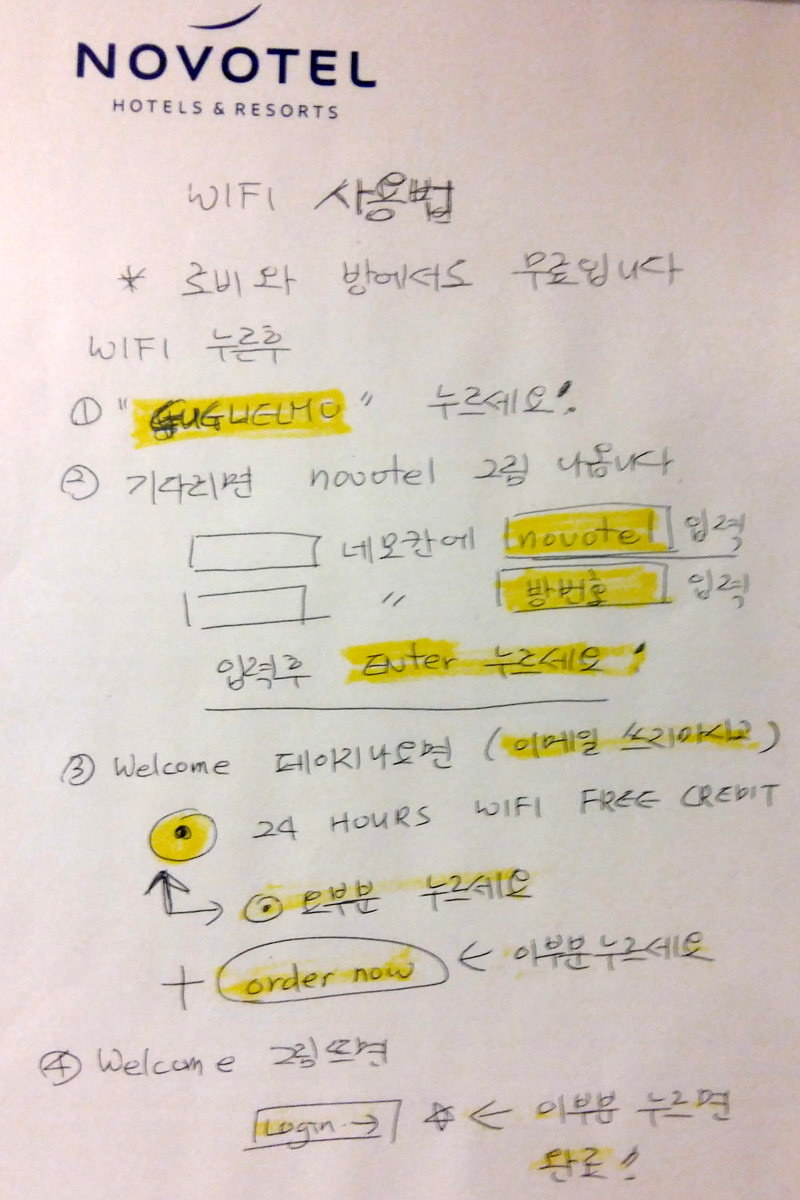 NOVOTEL
HOTELS & RESORTS
WIFI 사용법
* 로비와 방에서도 무료입니다
WIFI 누른후
① "GUGLIELMO" 누르세요!
② 기다리면 novotel 그림 나옵니다
네모칸에 novotel 입력
〃 방번호 입력
입력후 Enter 누르세요!
③ Welcome 페이지나오면 (이메일 쓰지마시고)
24 HOURS WIFI FREE CREDIT
⊙ 요부분 누르세요
+ order now ← 이부분누르세요
④ Welcome 그림뜨면
Login → ☆ ← 이부분 누르면
완료!!